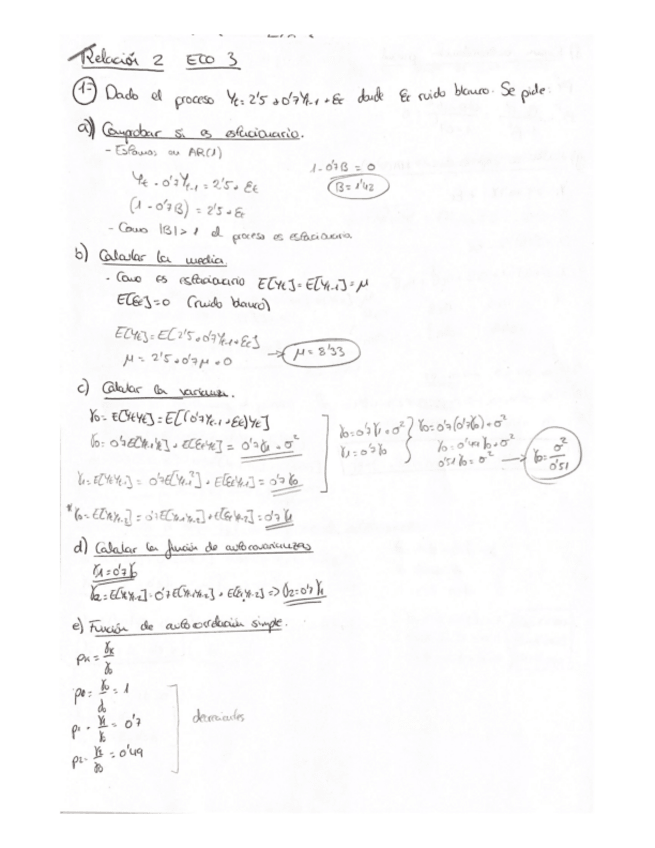 Relación 2 ECO 3
1- Dado el proceso Yt = 2'5 + 0'7Yt-1 + Et donde Et ruido blanco. Se pide:
a) Comprobar si es estacionario.
- Estamos en AR(1)
Yt - 0'7Yt-1 = 2'5 + Et
(1 - 0'7B) = 2'5 + Et
1 - 0'7B = 0
B = 1'42
- Como |B| > 1 el proceso es estacionario
b) Calcular la media.
- Como es estacionario E[Yt] = E[Yt-1] = μ
E[Et] = 0 (ruido blanco)
E[Yt] = E[2'5 + 0'7Yt-1 + Et]
μ = 2'5 + 0'7μ + 0 → μ = 8'33
c) Calcular la varianza.
γ0 = E[YtYt] = E[(0'7Yt-1 + Et)Yt]
γ0 = 0'7E[Yt-1Yt] + E[EtYt] = 0'7γ1 + σ²
γ1 = E[YtYt-1] = 0'7E[Yt-1²] + E[EtYt-1] = 0'7γ0
γ0 = 0'7γ1 + σ²
γ1 = 0'7γ0
γ0 = 0'7(0'7γ0) + σ²
γ0 = 0'49γ0 + σ²
0'51γ0 = σ² → γ0 = σ²/0'51
= E[YtYt-2] = 0'7E[Yt-1Yt-2] + E[EtYt-2] = 0'7γ1
d) Calcular la función de autocovarianzas
γ1 = 0'7γ0
γ2 = E[YtYt-2] = 0'7E[Yt-1Yt-2] + E[EtYt-2] => γ2 = 0'7γ1
e) Función de autocorrelación simple.
ρk = γk/γ0
ρ0 = γ0/γ0 = 1
ρ1 = γ1/γ0 = 0'7
ρ2 = γ2/γ0 = 0'49